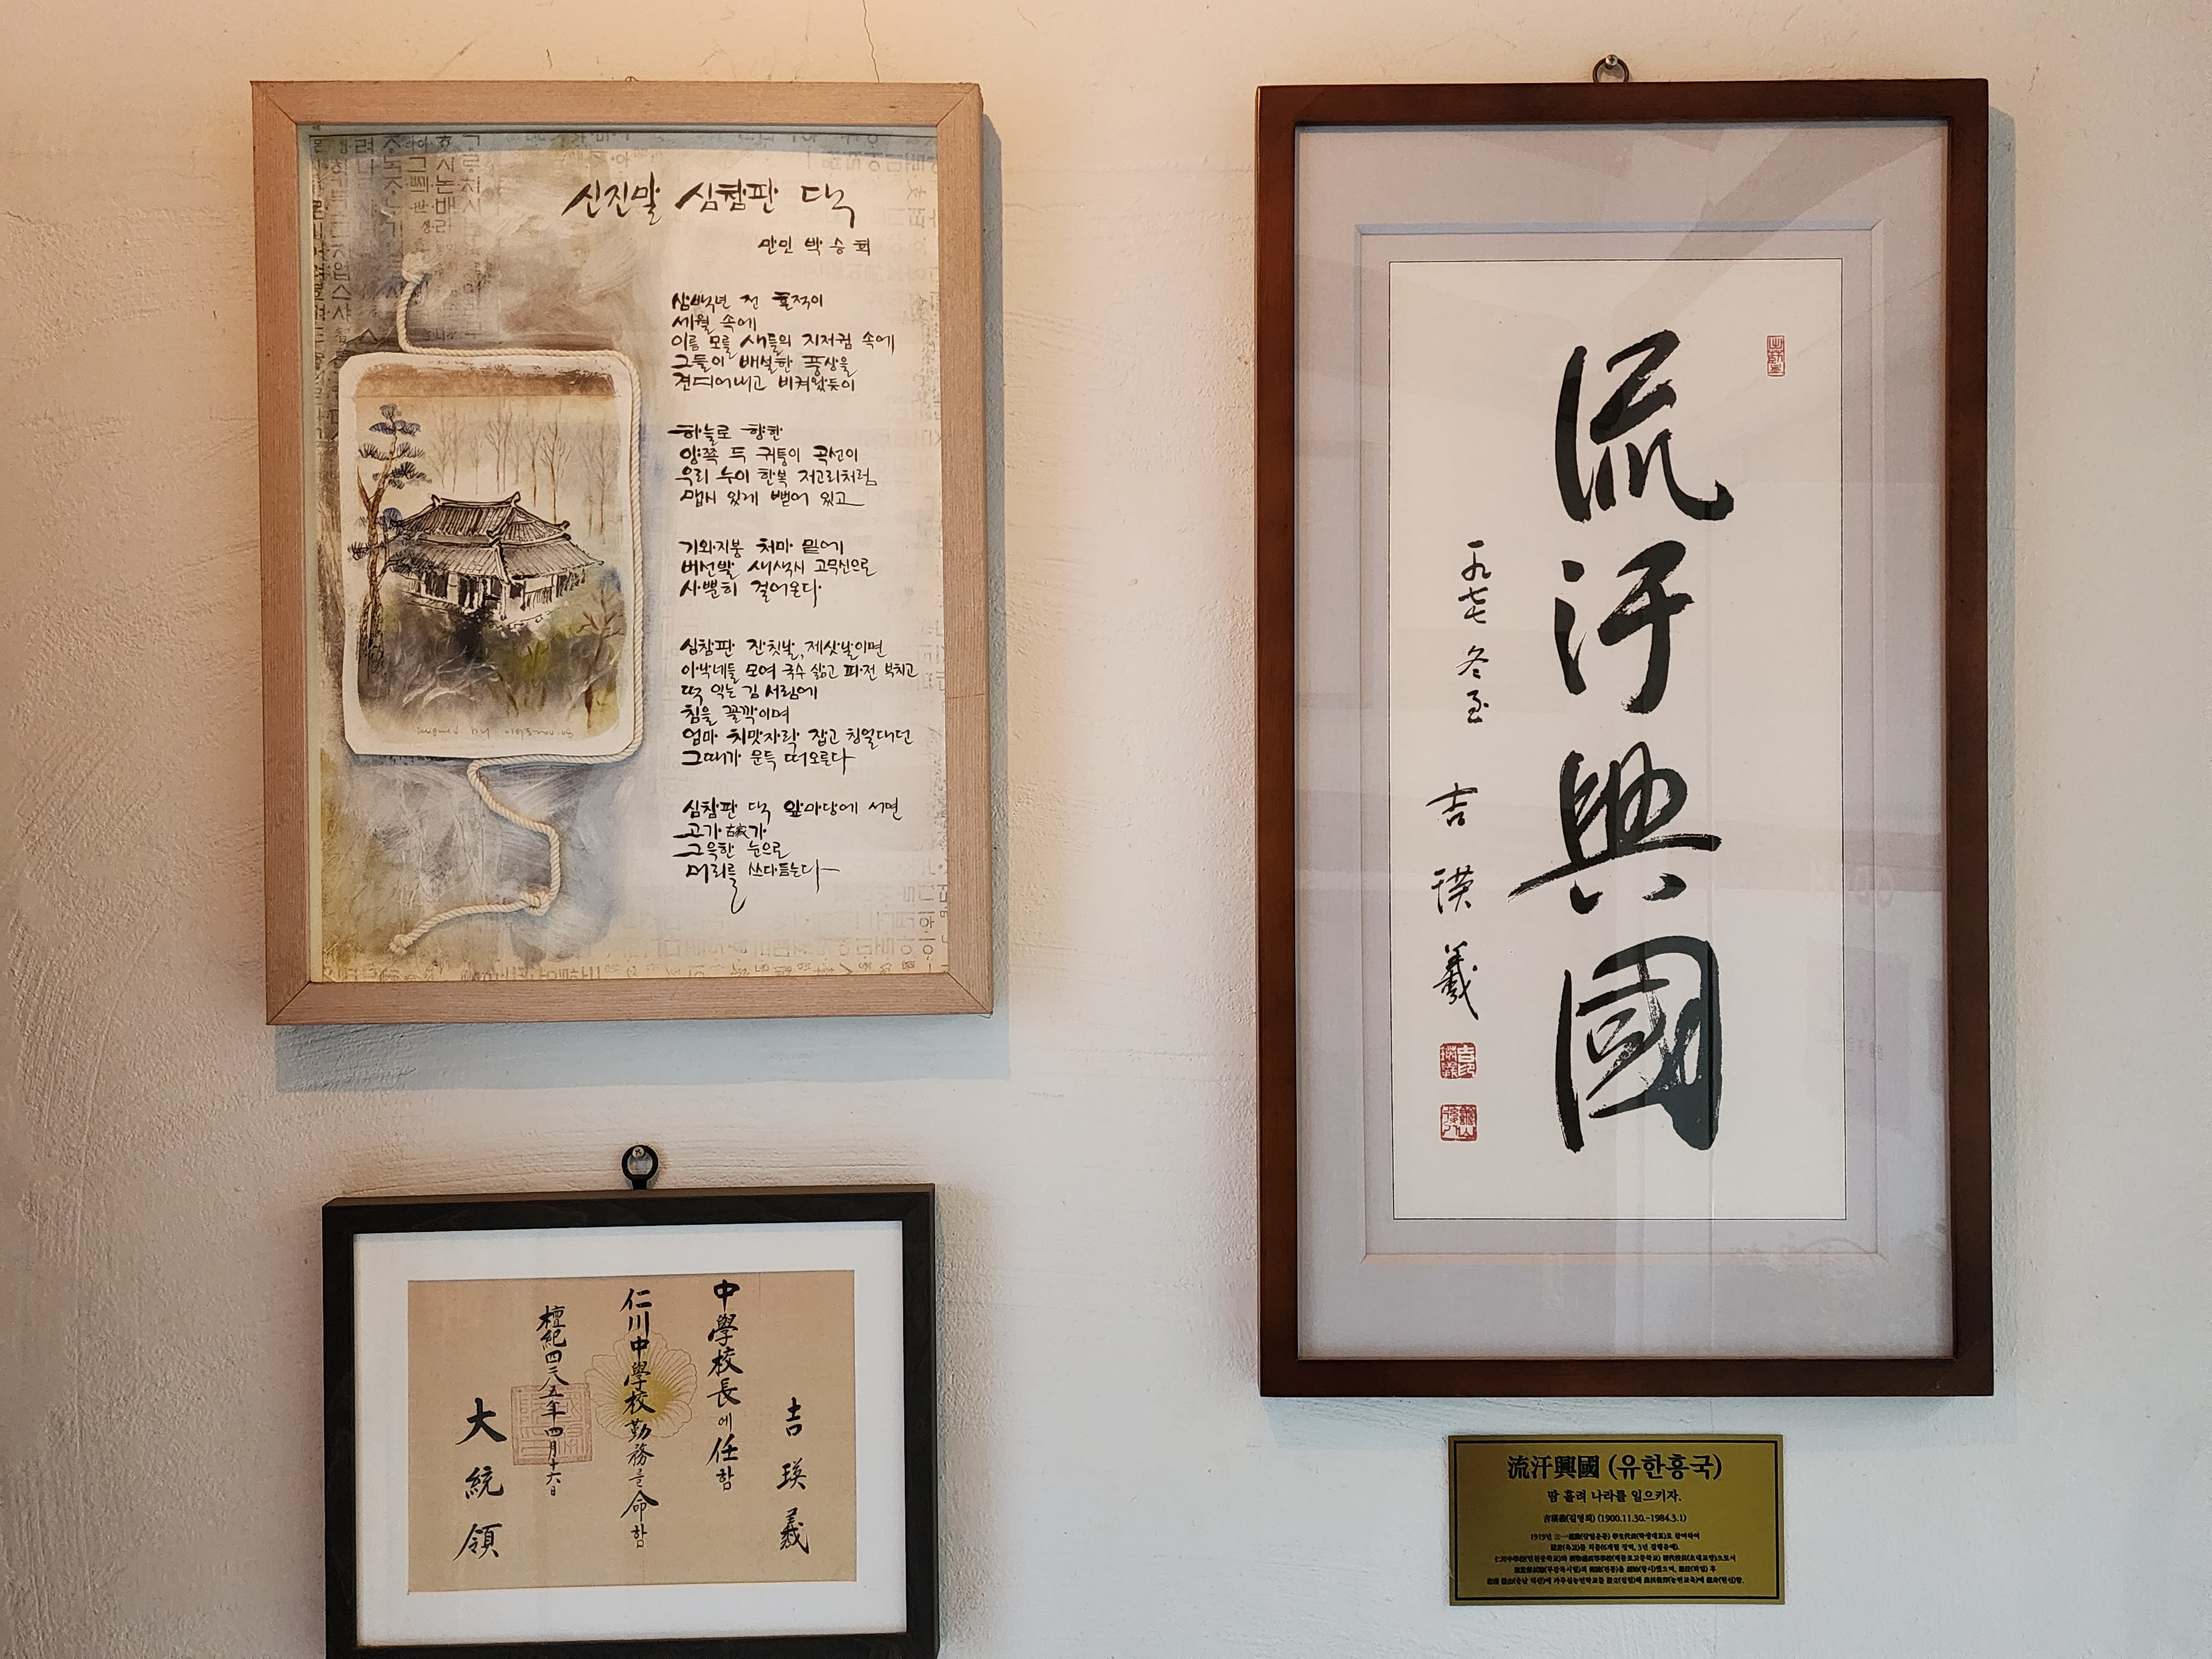 신진말 심참판 댁
만인 박승희
삼백년 전 흔적이
세월 속에
이름 모를 새들의 지저귐 속에
그들이 배설한 풍상을
견디어내고 비켜왔듯이
하늘로 향한
양쪽 두 귀퉁이 곡선이
우리 누이 한복 저고리처럼
맵시 있게 뻗어 있고
기와지붕 처마 밑에
버선발 새색시 고무신으로
사뿐히 걸어온다
심참판 잔칫날, 제삿날이면
아낙네들 모여 국수 삶고 파전 부치고
떡 익는 김 서림에
침을 꼴깍이며
엄마 치맛자락 잡고 칭얼대던
그때가 문득 떠오른다
심참판 댁 앞마당에 서면
고가古家가
그윽한 눈으로
머리를 쓰다듬는다
流汗興國
一九七七 冬至
吉瑛羲
吉瑛羲
中學校長에 任함
仁川中學校 勤務를 命함
檀紀四二八五年四月十六日
大統領
流汗興國 (유한흥국)
땀 흘려 나라를 일으키자.
吉瑛羲(길영희) (1900.11.30.-1984.3.1)